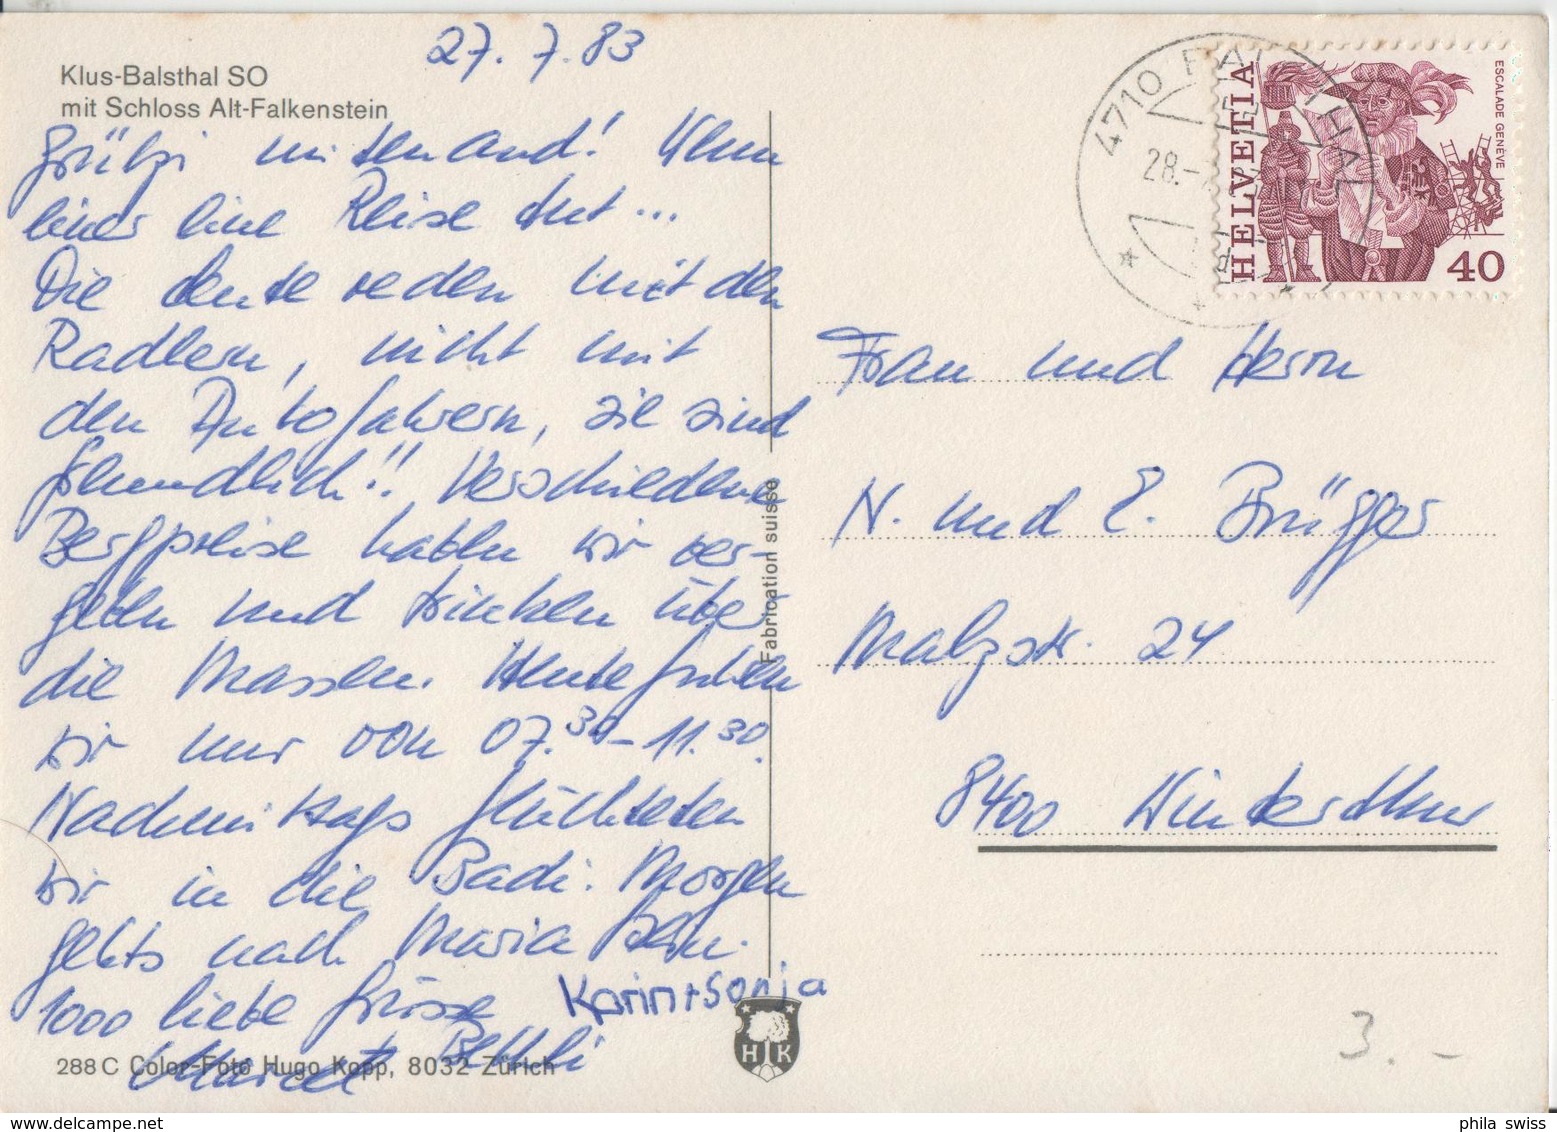 27. 7. 83
Klus-Balsthal SO
mit Schloss Alt-Falkenstein
Grützi mitenand! Wenn
einer eine Reise tut...
Die Leute reden mit den
Radlern, nicht mit
den Autofahrern, sie sind
freundlich!! Verschiedene
Bergpreise haben wir ver-
geben und trinken über
die Massen. Heute fuhren
wir nur von 07.30 - 11.30.
Nachmittags flüchteten
wir in die Badi. Morgen
gehts nach Maria
1000 liebe Grüsse Karin + Sonja
Marcel Bethli
288 C Color-Foto Hugo Kopp, 8032 Zürich
Fabrication suisse
HK
4710 BALSTHAL
28.-
HELVETIA
ESCALADE GENÈVE
40
Frau und Herrn
N. und E. Brügger
Malzstr. 24
8400 Winterthur
3.-
phila swiss